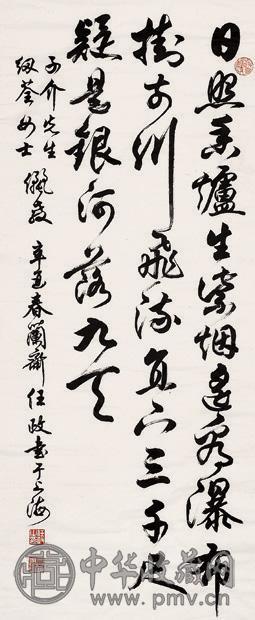 日照香爐生紫烟遥看瀑布
掛前川飛流直下三千尺
疑是銀河落九天
子介先生
女士
儷教
春蘭齋任政書于上海
中华收藏网
www.pmv.cn